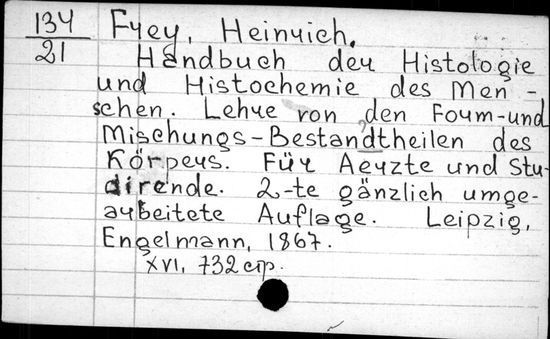 134 Frey, Heinrich.
21 Handbuch der Histologie
und Histochemie des Men-
schen. Lehre von den Form-und
Mischungs-Bestandtheilen des
Körpers. Für Aerzte und Stu-
dirende. 2-te gänzlich umge-
arbeitete Auflage. Leipzig,
Engelmann, 1867.
XVI, 732 стр.